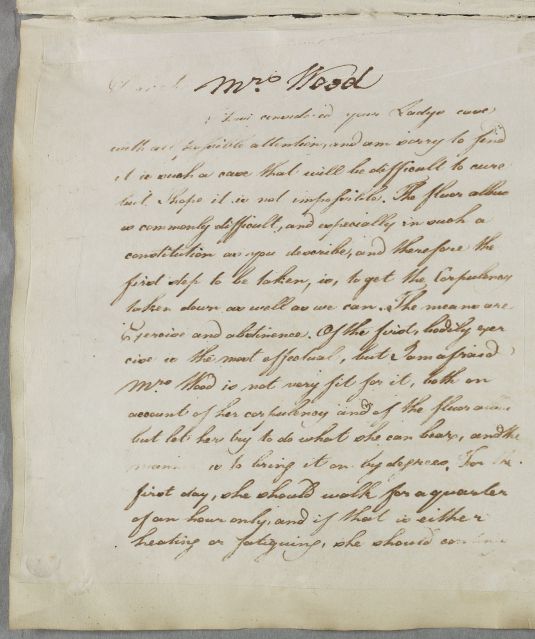 Mrs. Wood
I have considered your Ladys case
with all possible attention, and am sorry to find
it is such a case that will be difficult to cure
but I hope it is not impossible. The fluor albus
is commonly difficult, and especially in such a
constitution as you describe, and therefore the
first step to be taken, is, to get the Corpulency
taken down as well as we can. The means are
Exercise and abstinence. Of the first, bodily exer
cise is the most effectual, but I am afraid
Mrs. Wood is not very fit for it, both on
account of her corpulency and of the fluor
but let her try to do what she can bear, and the
manner is to bring it on by degrees. For the
first day, she should walk for a quarter
of an hour only, and if that is either
heating or fatiguing, she should